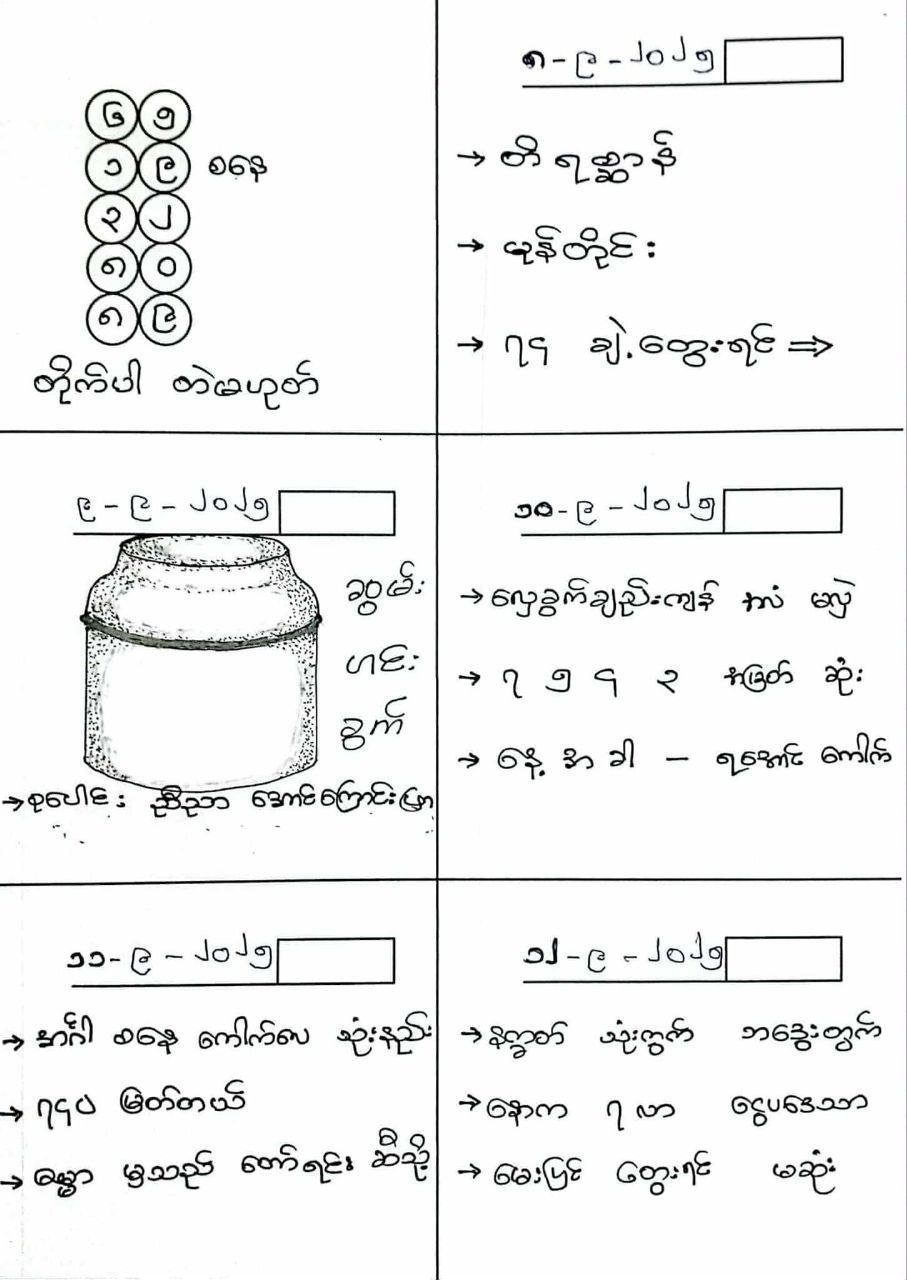 ၆ ၅
၁ ၉ စနေ
၃ ၂
၈ ၀
၈ ၉
တိုက်ပါ တဲမဟုတ်
၈-၉-၂၀၂၅
→ တိရစ္ဆာန်
→ ယုန်တိုင်း
→ ၇၄ ချဲ့တွေးရင် ⇒
၉-၉-၂၀၂၅
ဆွမ်း
ဟင်း
ခွက်
→ စုပေါင်း ညီညာ အောင်ကြောင်းဖြာ
၁၀-၉-၂၀၂၅
→ လှေခွက်ချည်းကျန် အလံ မလှဲ
→ ၇ ၅ ၄ ၃ အဖြတ် ဆုံး
→ နေ့ အခါ - ရအောင် ကောက်
၁၁-၉-၂၀၂၅
→ အင်္ဂါ စနေ ကောက်လေ သုံးနည်း
→ ၇၄ပ မြတ်တယ်
→ ဓမ္မာ မွသည် တော်ရင်း ဆီသို့
၁၂-၉-၂၀၂၅
→ နက္ခတ် သုံးကွက် ဘဒွေးတွက်
→ နောက ၇ လာ ငွေပဒေသာ
→ မေးမြင် တွေးရင် မဆုံး